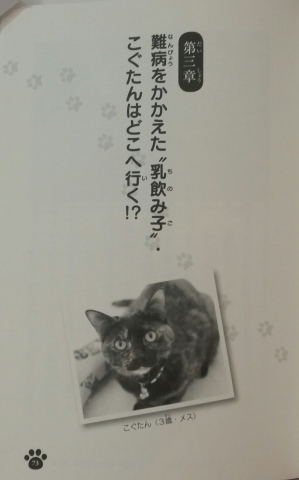 第三章
難病をかかえた〝乳飲み子〟・
こぐたんはどこへ行く!?
こぐたん(3歳・メス)
73